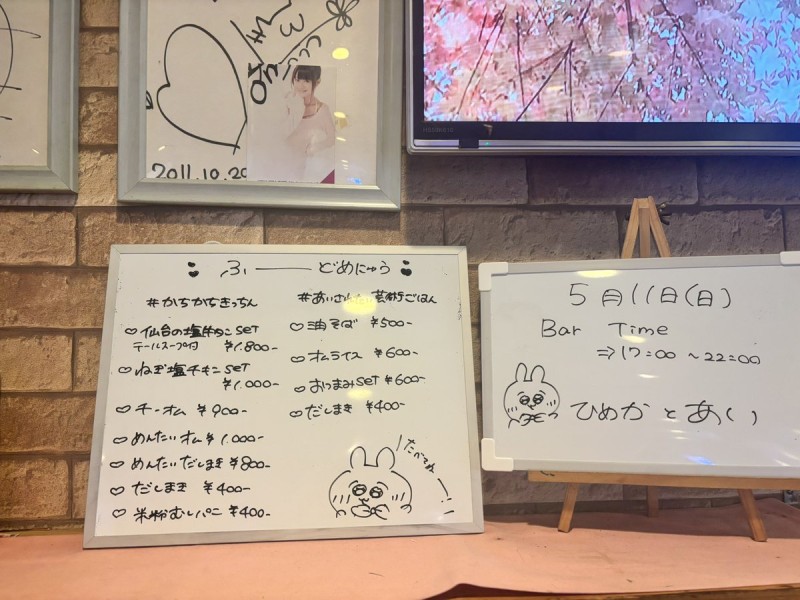 2011.10.29
ふーーーどめにゅう
#かちかちきっちん
♡仙台の塩牛タンSET
テールスープ付 ¥1.800-
♡ねぎ塩チキンSET
¥1.000-
♡チーオム ¥900-
♡めんたいオム ¥1.000-
♡めんたいだしまき ¥800-
♡だしまき ¥400-
♡米粉むしパン ¥400-
ごはん
♡油そば ¥500-
♡オムライス ¥600-
♡おつまみSET ¥600-
♡だしまき ¥400-
たべてね
5月11日(日)
Bar Time
⇒17:00~22:00
ひめかとあい